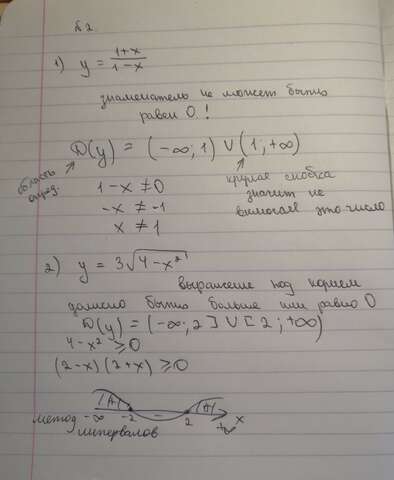 № 2.
1) y = (1+x)/(1-x)
знаменатель не может быть
равен 0!
D(y) = (-∞; 1) ∪ (1; +∞)
область
опред.
круглая скобка
значит не
1-x ≠ 0
-x ≠ -1
это число
x ≠ 1
2) y = 3√(4-x²)
выражение под корнем
должно быть больше или равно 0
D(y) = (-∞; 2] ∪ [2; +∞)
4-x² ≥ 0
(2-x)(2+x) ≥ 0
метод
интервалов
-∞ -2 - 2 +∞ x